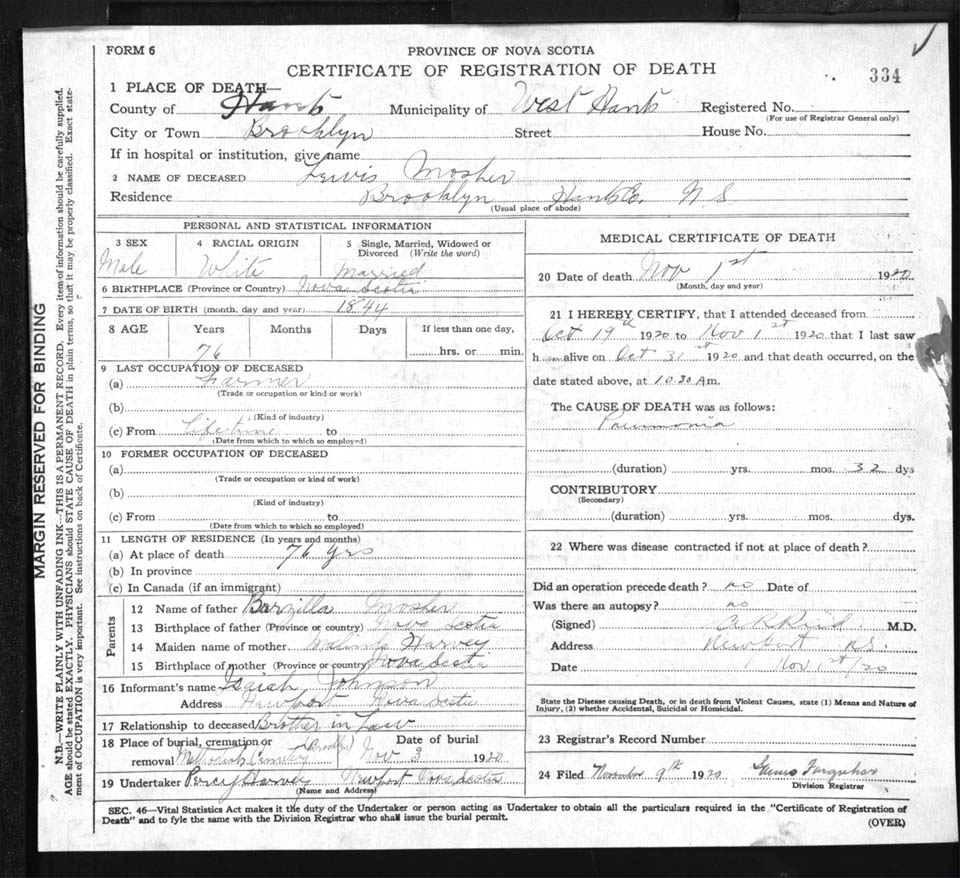 FORM 6
PROVINCE OF NOVA SCOTIA
CERTIFICATE OF REGISTRATION OF DEATH
334
1 PLACE OF DEATH—
County of Hants Municipality of West Hants Registered No.
(For use of Registrar General only)
City or Town Brooklyn Street House No.
If in hospital or institution, give name
2 NAME OF DECEASED Lewis Mosher
Residence Brooklyn Hants Co. N.S.
(Usual place of abode)
PERSONAL AND STATISTICAL INFORMATION
3 SEX 4 RACIAL ORIGIN 5 Single, Married, Widowed or Divorced (Write the word)
Male White Married
6 BIRTHPLACE (Province or Country) Nova Scotia
7 DATE OF BIRTH (month, day and year) 1844
8 AGE Years Months Days If less than one day,
76 hrs. or min.
9 LAST OCCUPATION OF DECEASED
(a) Farmer
(Trade or occupation or kind or work)
(b)
(Kind of industry)
(c) From Life time to
(Date from which to which so employed)
10 FORMER OCCUPATION OF DECEASED
(a)
(Trade or occupation or kind of work)
(b)
(Kind of industry)
(c) From to
(Date from which to which so employed)
11 LENGTH OF RESIDENCE (In years and months)
(a) At place of death 76 yrs
(b) In province
(c) In Canada (if an immigrant)
Parents
12 Name of father Barzilla Mosher
13 Birthplace of father (Province or country) Nova Scotia
14 Maiden name of mother Malinda Harvey
15 Birthplace of mother (Province or country) Nova Scotia
16 Informant's name Isaiah Johnson
Address Newport Nova Scotia
17 Relationship to deceased Brother in Law
18 Place of burial, cremation or Date of burial
removal Methodist Cemetery (Brooklyn) Nov 3 1920
19 Undertaker Percy Harvey Newport Nova Scotia
(Name and Address)
MEDICAL CERTIFICATE OF DEATH
20 Date of death Nov 1st 1920
(Month, day and year)
21 I HEREBY CERTIFY, that I attended deceased from
Oct 19th 1920 to Nov 1st 1920 that I last saw
h im alive on Oct 31st 1920 and that death occurred, on the
date stated above, at 10.30 Am.
The CAUSE OF DEATH was as follows:
Pneumonia
(duration) yrs. mos. 32 dys
CONTRIBUTORY
(Secondary)
(duration) yrs. mos. dys.
22 Where was disease contracted if not at place of death?
Did an operation precede death? no Date of
Was there an autopsy? no
(Signed) M.D.
Address Newport N.S.
Date Nov 1st/20
State the Disease causing Death, or in death from Violent Causes, state (1) Means and Nature of
Injury, (2) whether Accidental, Suicidal or Homicidal.
23 Registrar's Record Number
24 Filed November 9th 1920 Farquhar
Division Registrar
SEC. 46—Vital Statistics Act makes it the duty of the Undertaker or person acting as Undertaker to obtain all the particulars required in the "Certificate of Registration of
Death" and to fyle the same with the Division Registrar who shall issue the burial permit.
(OVER)
MARGIN RESERVED FOR BINDING
N.B.—WRITE PLAINLY WITH UNFADING INK—THIS IS A PERMANENT RECORD. Every item of information should be carefully supplied.
AGE should be stated EXACTLY. PHYSICIANS should STATE CAUSE OF DEATH in plain terms, so that it may be properly classified. Exact state-
ment of OCCUPATION is very important. See instructions on back of Certificate.